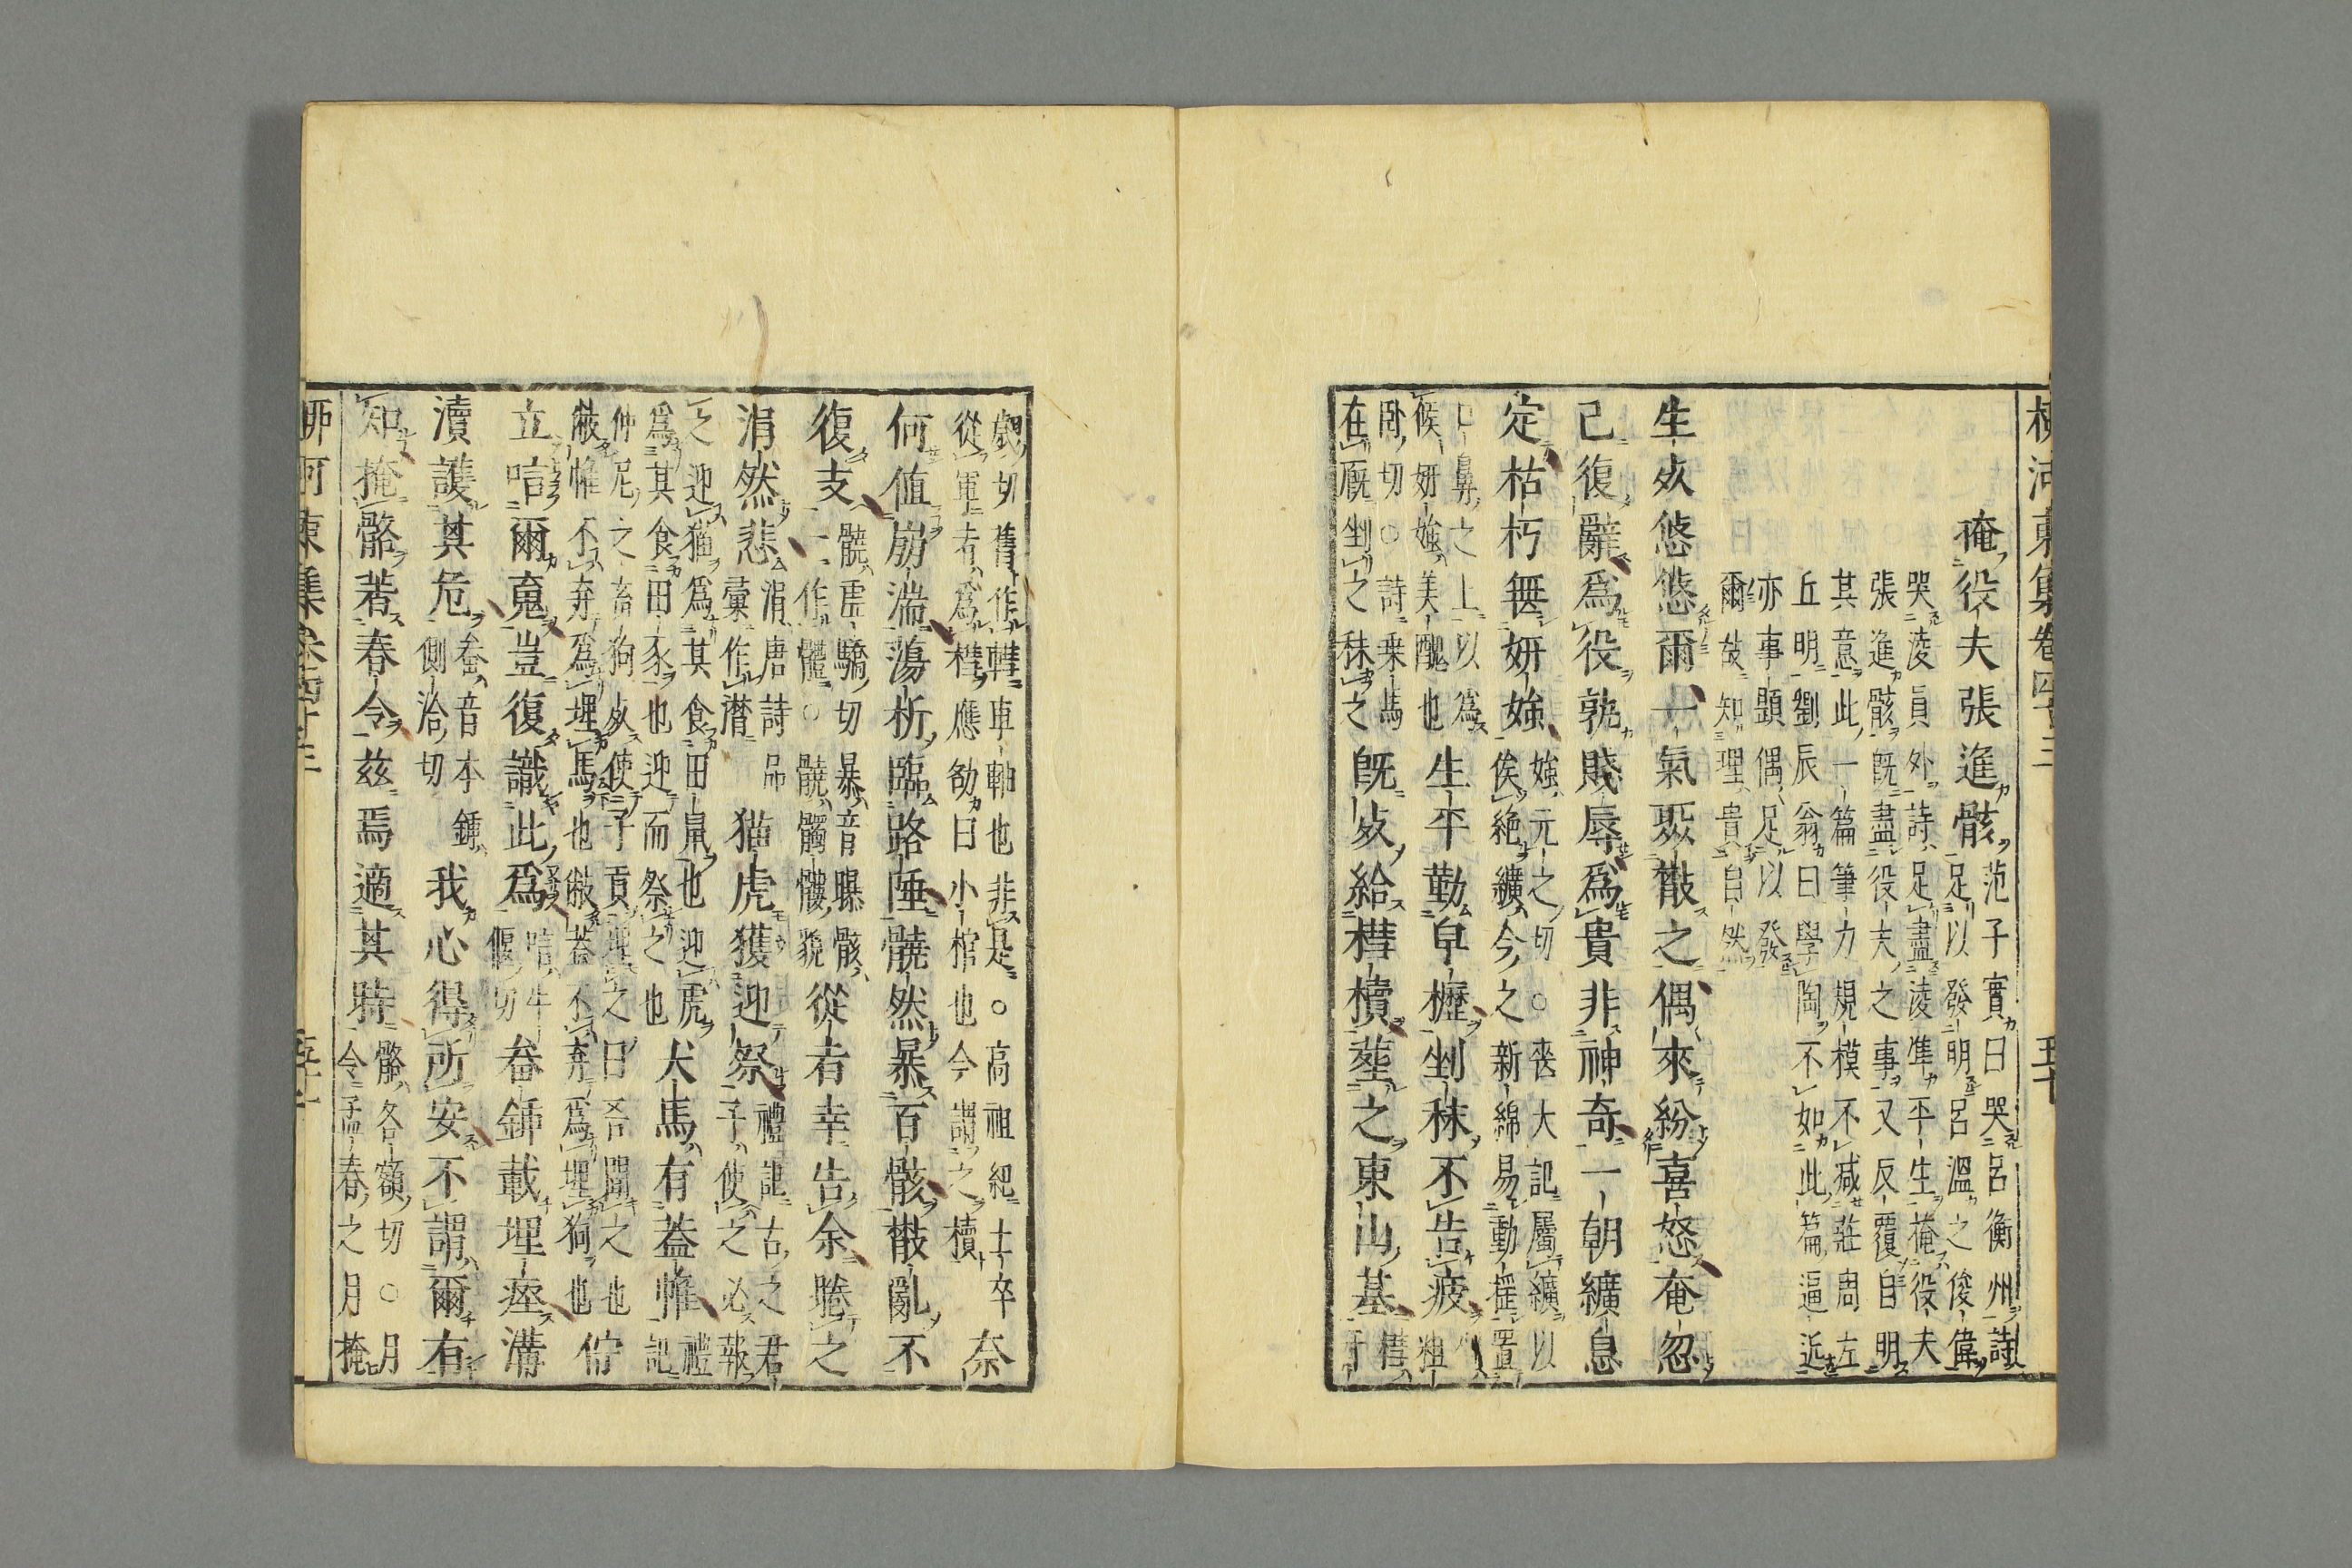 柳河東集卷四十三　五十
掩役夫張進骸　范子實曰哭呂衡州詩
足以發明呂溫之俊偉
哭淩員外詩足盡淩準平生掩役夫
張進骸既盡役夫之事又反覆自明
其意此一篇筆力規模不減莊周左
丘明劉辰翁曰學陶不如此篇逼近
亦事題偶足以發
爾故知理貴自然
生死悠悠爾一氣聚散之偶來紛喜怒奄忽
已復辭爲役孰賤辱爲貴非神奇一朝纊息
定枯朽無妍媸　媸充之切○喪大記屬纊以
俟絕纊今之新綿易動搖置
口鼻之上以爲
候妍媸美醜也　生平勤皁櫪剉秣不告疲　剉
粗
臥切○詩乘馬
在廏剉之秣之　既死給槥櫝葬之東山基　槥
于
歲切舊作轊車軸也非是○高祖紀士卒
從軍者爲槥應劭曰小棺也今謂之櫝　奈
何値崩湍蕩析臨路陲髐然暴百骸散亂不
復支　髐虛驕切暴音曝骸
一作體○髐髑髏貌　從者幸告余睠之
涓然悲　涓唐詩品
彙作潸　猫虎獲迎祭　禮記古之君
子使之必報
之迎猫爲其食田鼠也迎虎
爲其食田豕也迎而祭之也　犬馬有蓋帷　禮
記
仲尼之畜狗死使子貢埋之曰吾聞之也
敝帷不弃爲埋馬也敝蓋不弃爲埋狗也　佇
立唁爾䰟豈復識此爲　唁牛
偃切　畚鍤載埋瘞溝
瀆護其危　畚音本鍤
側洽切　我心得所安不謂爾有
知掩骼著春令茲焉適其時　骼各額切○月
令孟春之月掩
柳河東集卷四十三　五十一